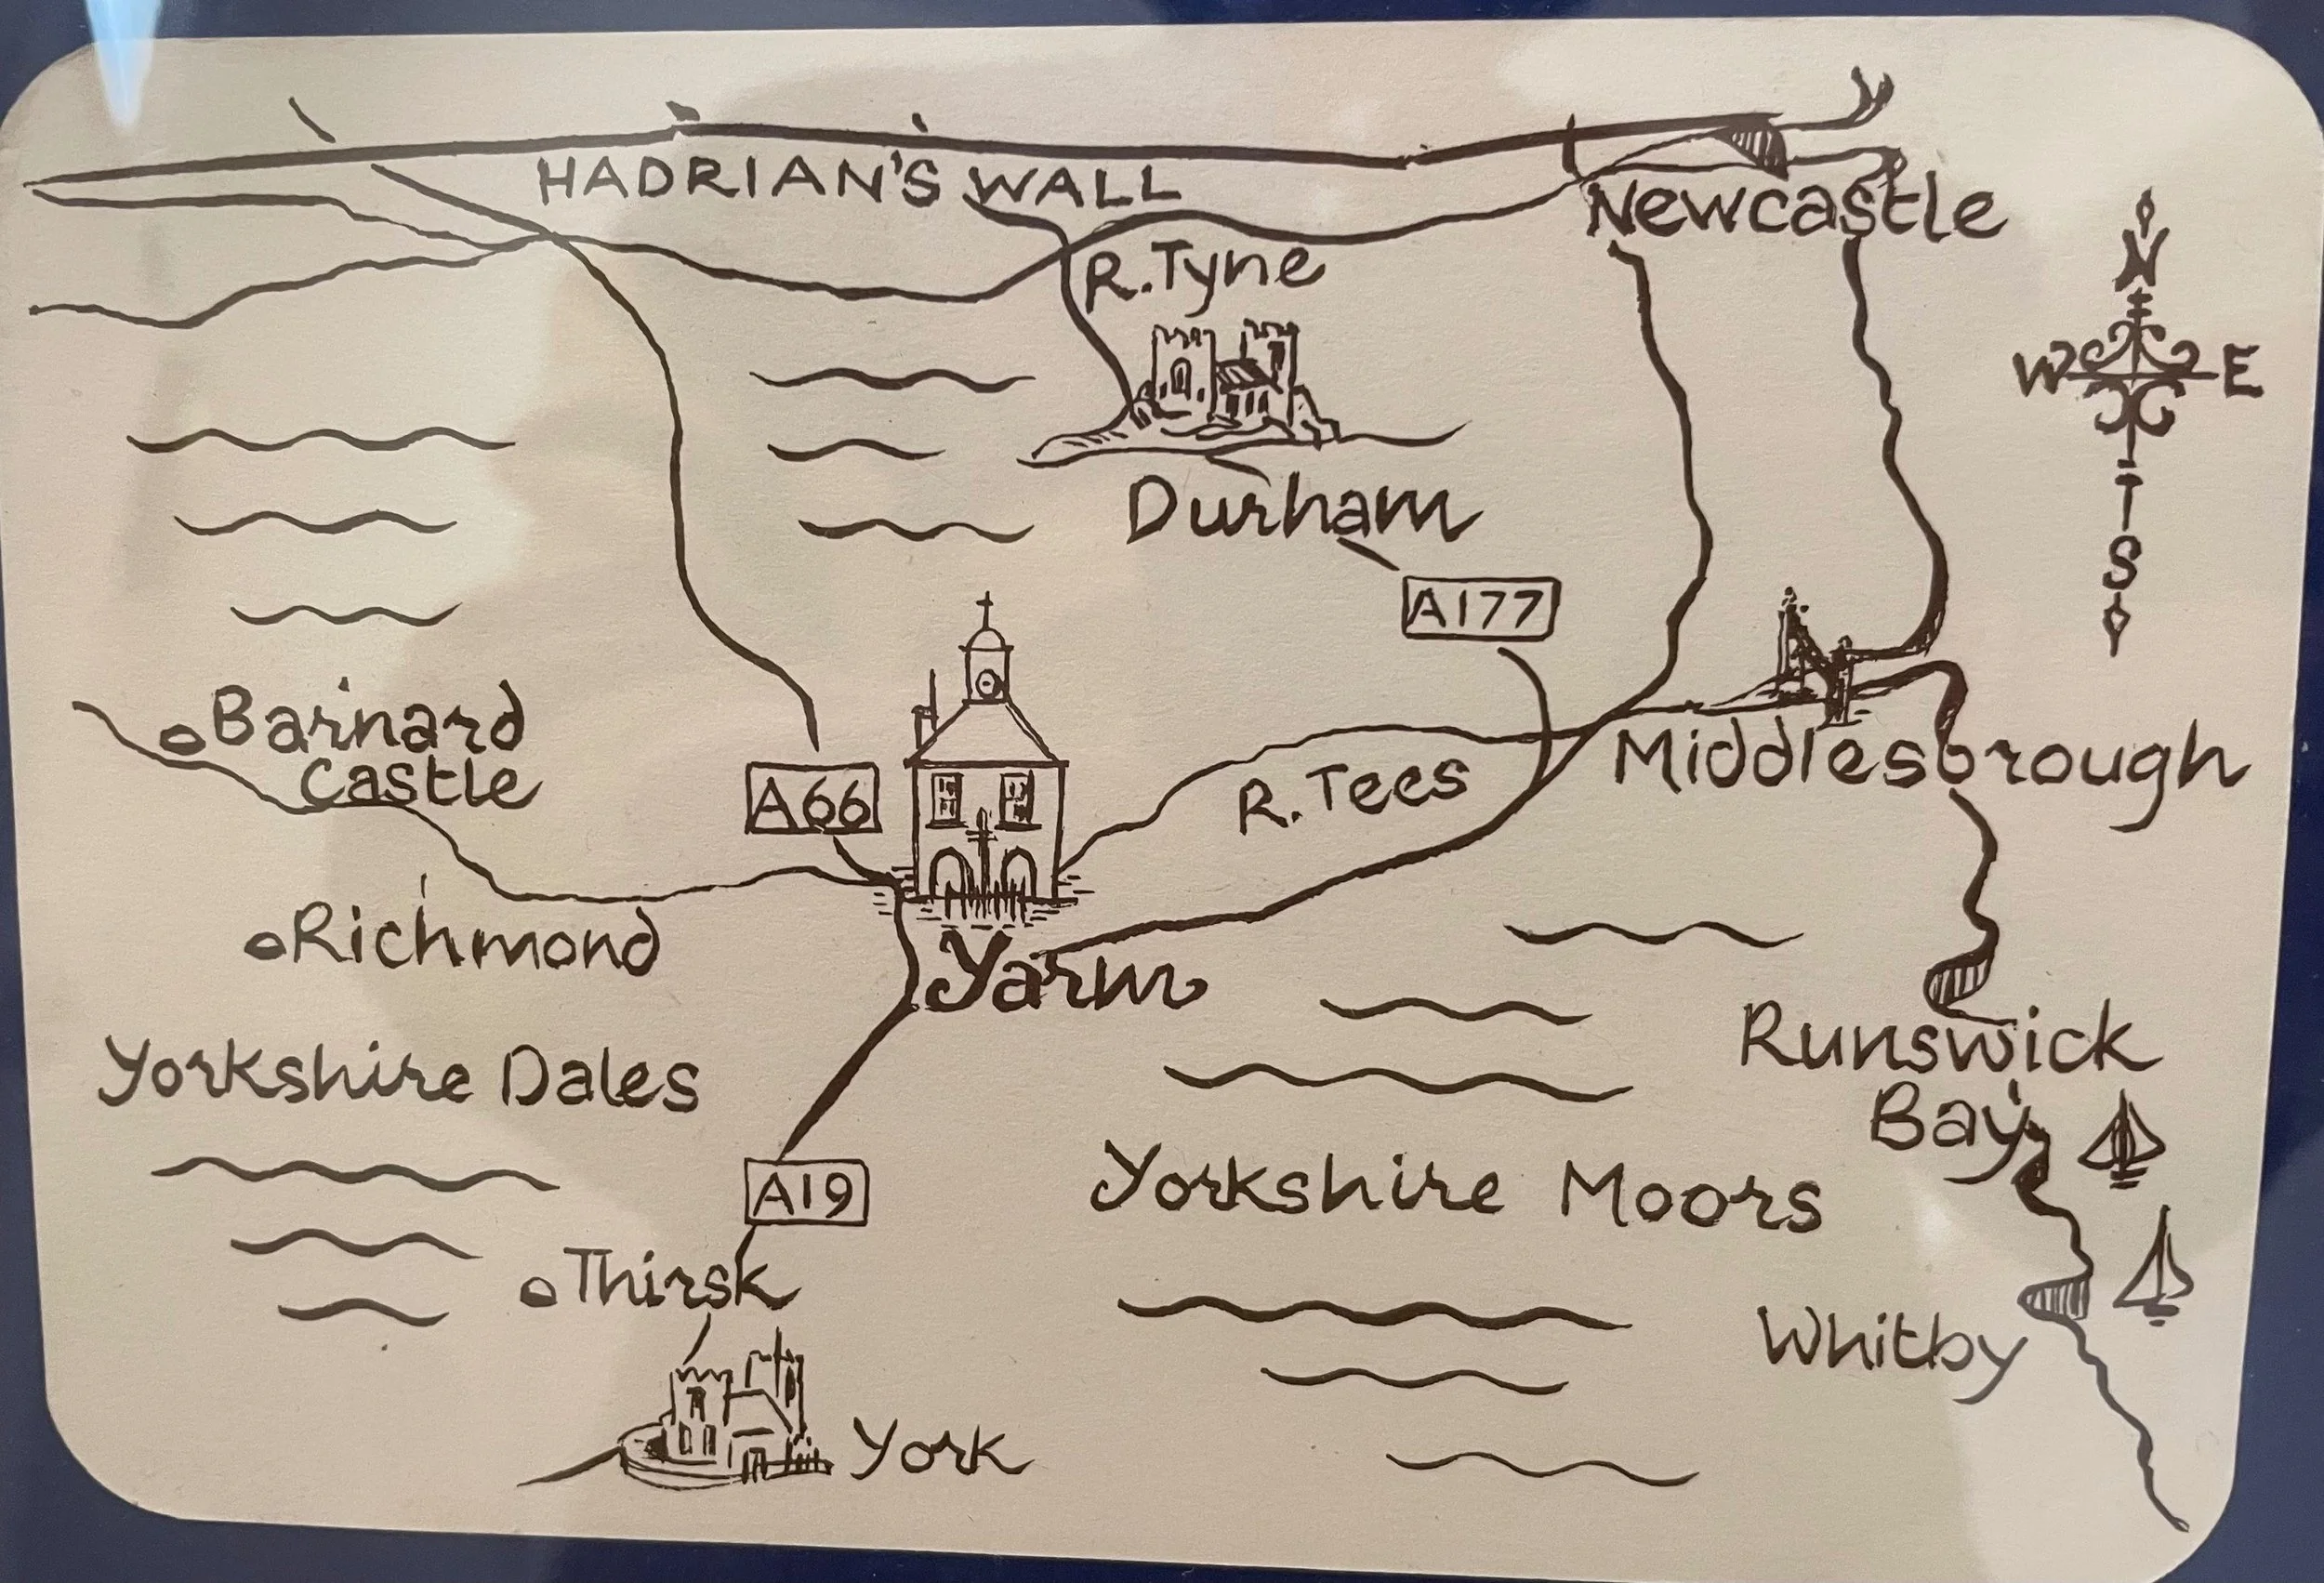 HADRIAN'S WALL
Newcastle
R. Tyne
N
W
E
S
Durham
A177
Barnard
Castle
A66
R. Tees
Middlesbrough
Richmond
Yarm
Runswick
Bay
Yorkshire Dales
Yorkshire Moors
A19
Thirsk
Whitby
York